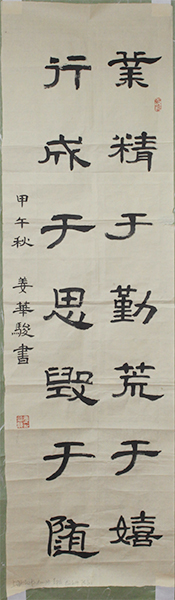 業精于勤荒于嬉
行成于思毁于随
甲午秋 姜華駿書